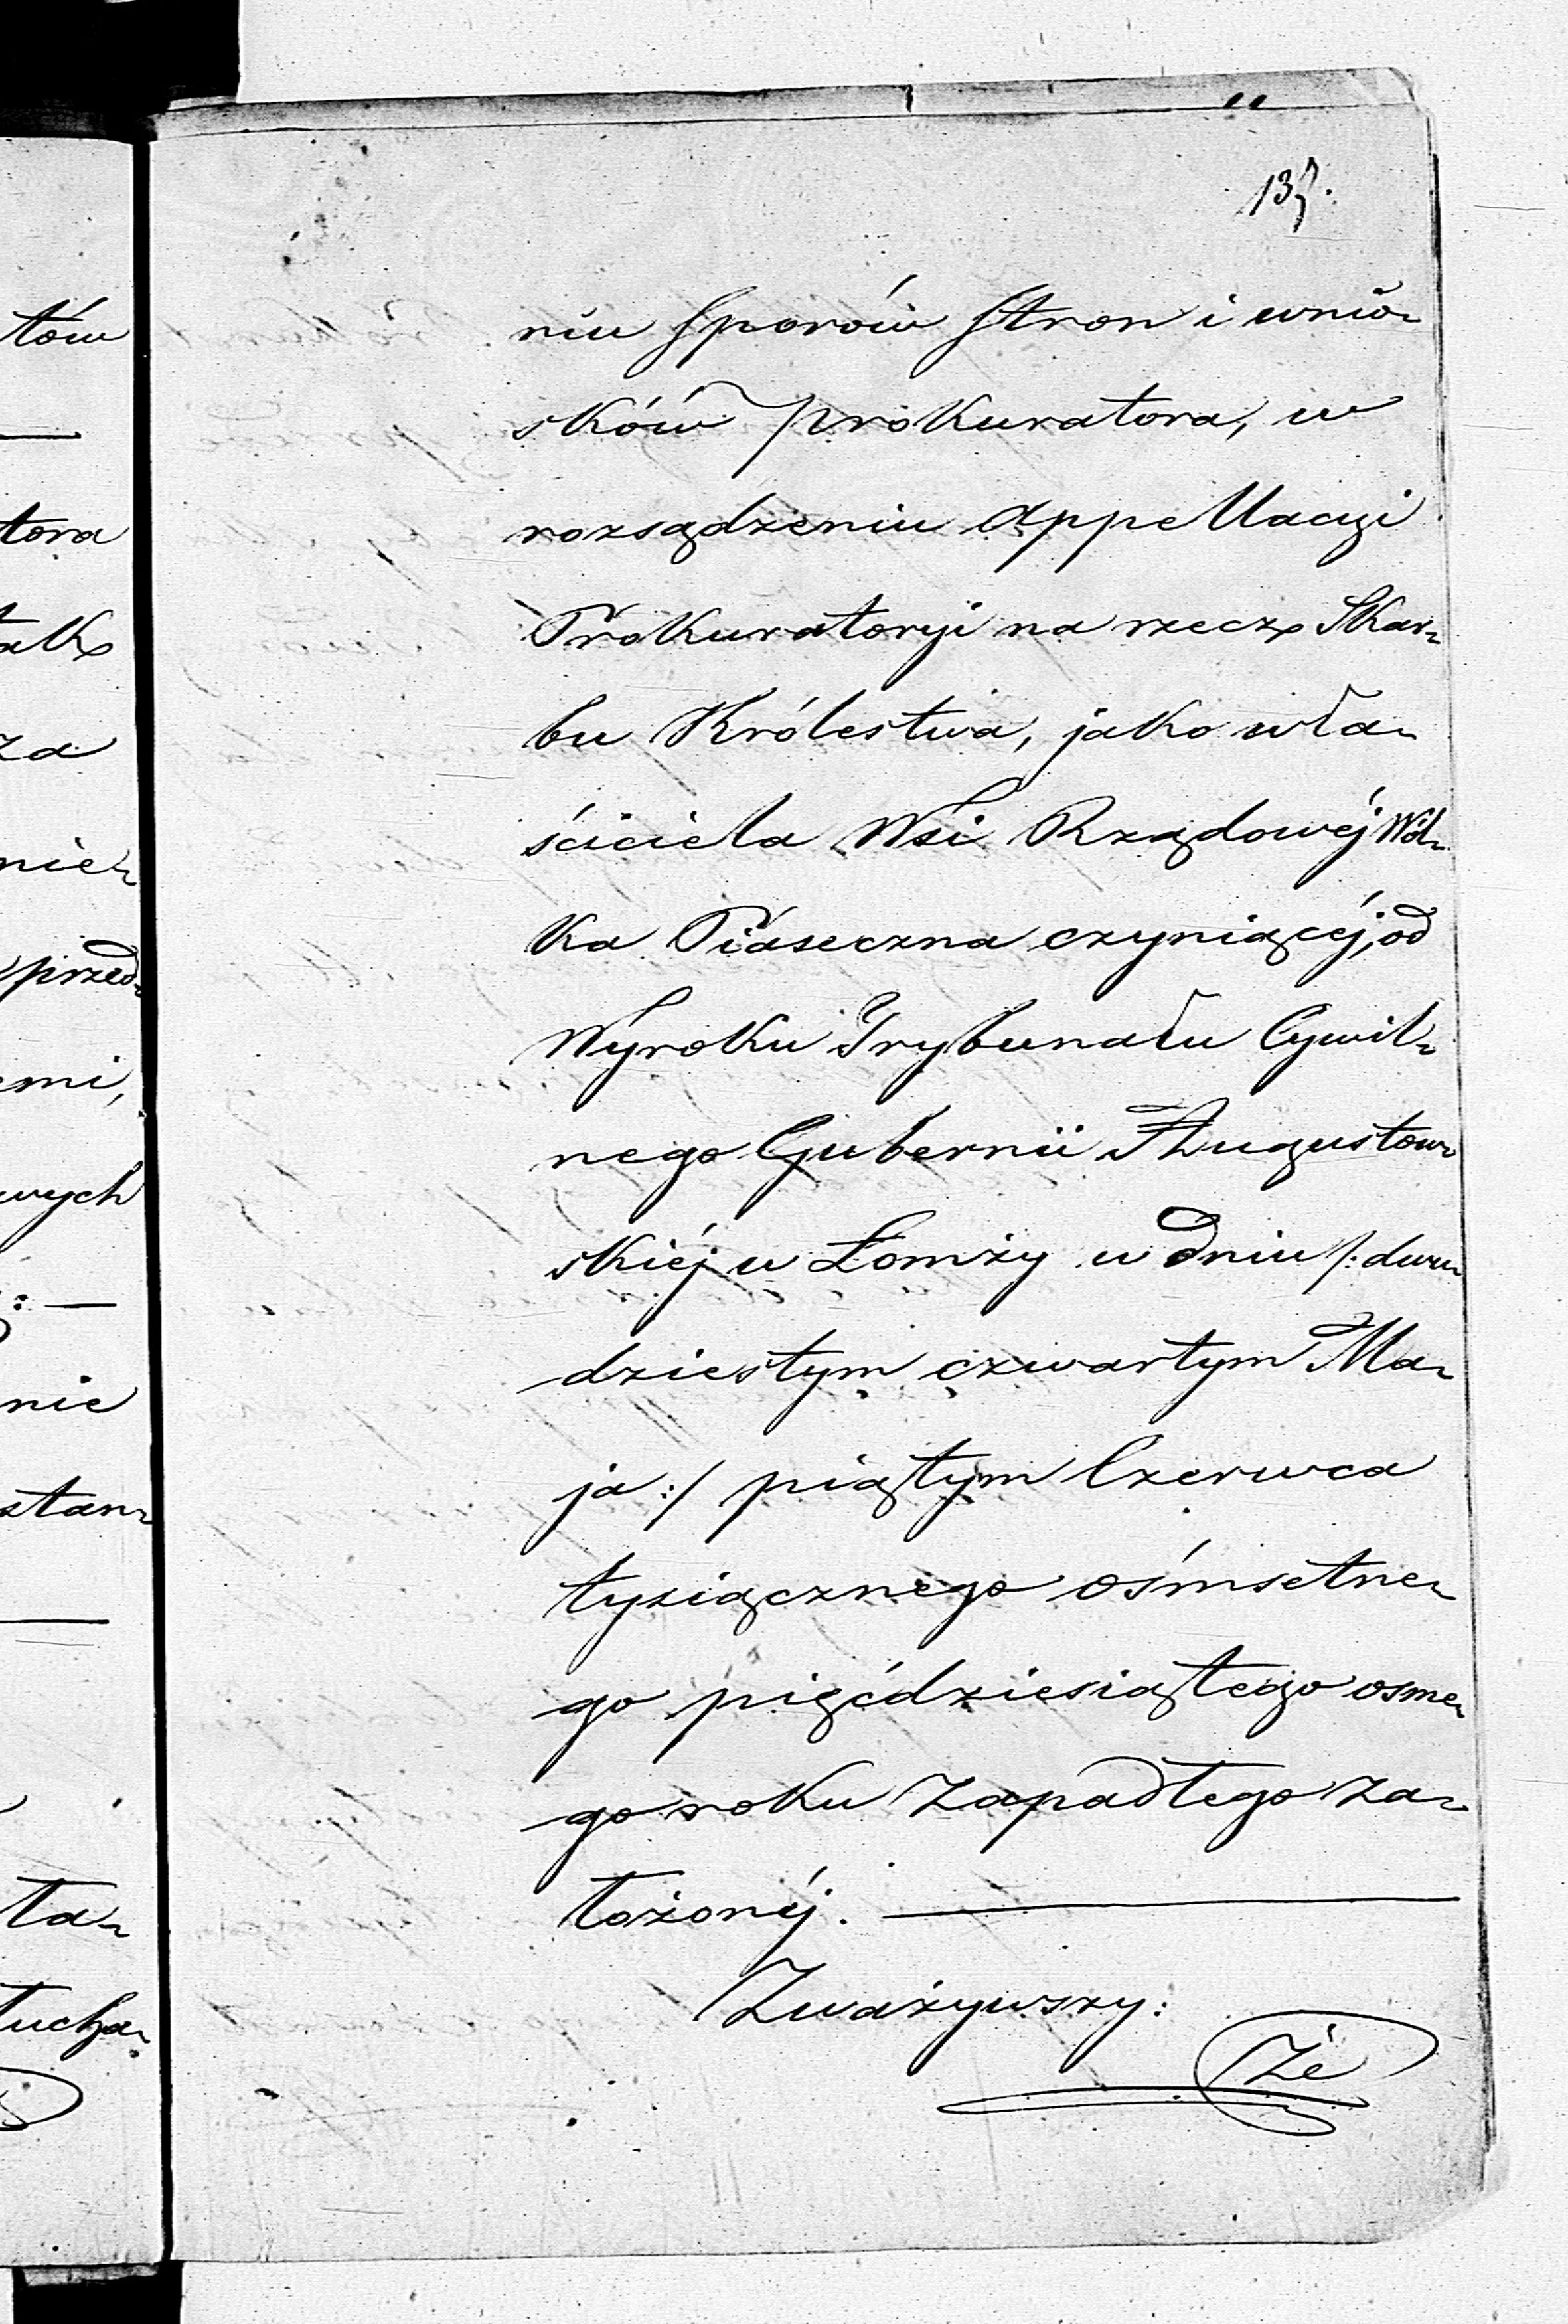 137.
niu sporów stron i wnio-
sków prokuratora, w
rozsądzeniu Appellacyi
Prokuratoryi na rzecz Skar-
bu Królestwa, jako wła-
ściciela Wsi Rządowéj Wól-
ka Piaseczna czyniącéj, od
Wyroku Trybunału Cywil-
nego Gubernii Augustow-
skiéj w Łomży w dniu /: dwu-
dziestym czwartym Ma-
ja :/ piątym Czerwca
tysiącznego ośmsetne-
go pięćdziesiątego osme-
go roku zapadłego za-
łożonéj.
Zważywszy:
Że
tów
tora
za
nie-
przed-
emi,
wych
nie
stan-
ła-
łucha-